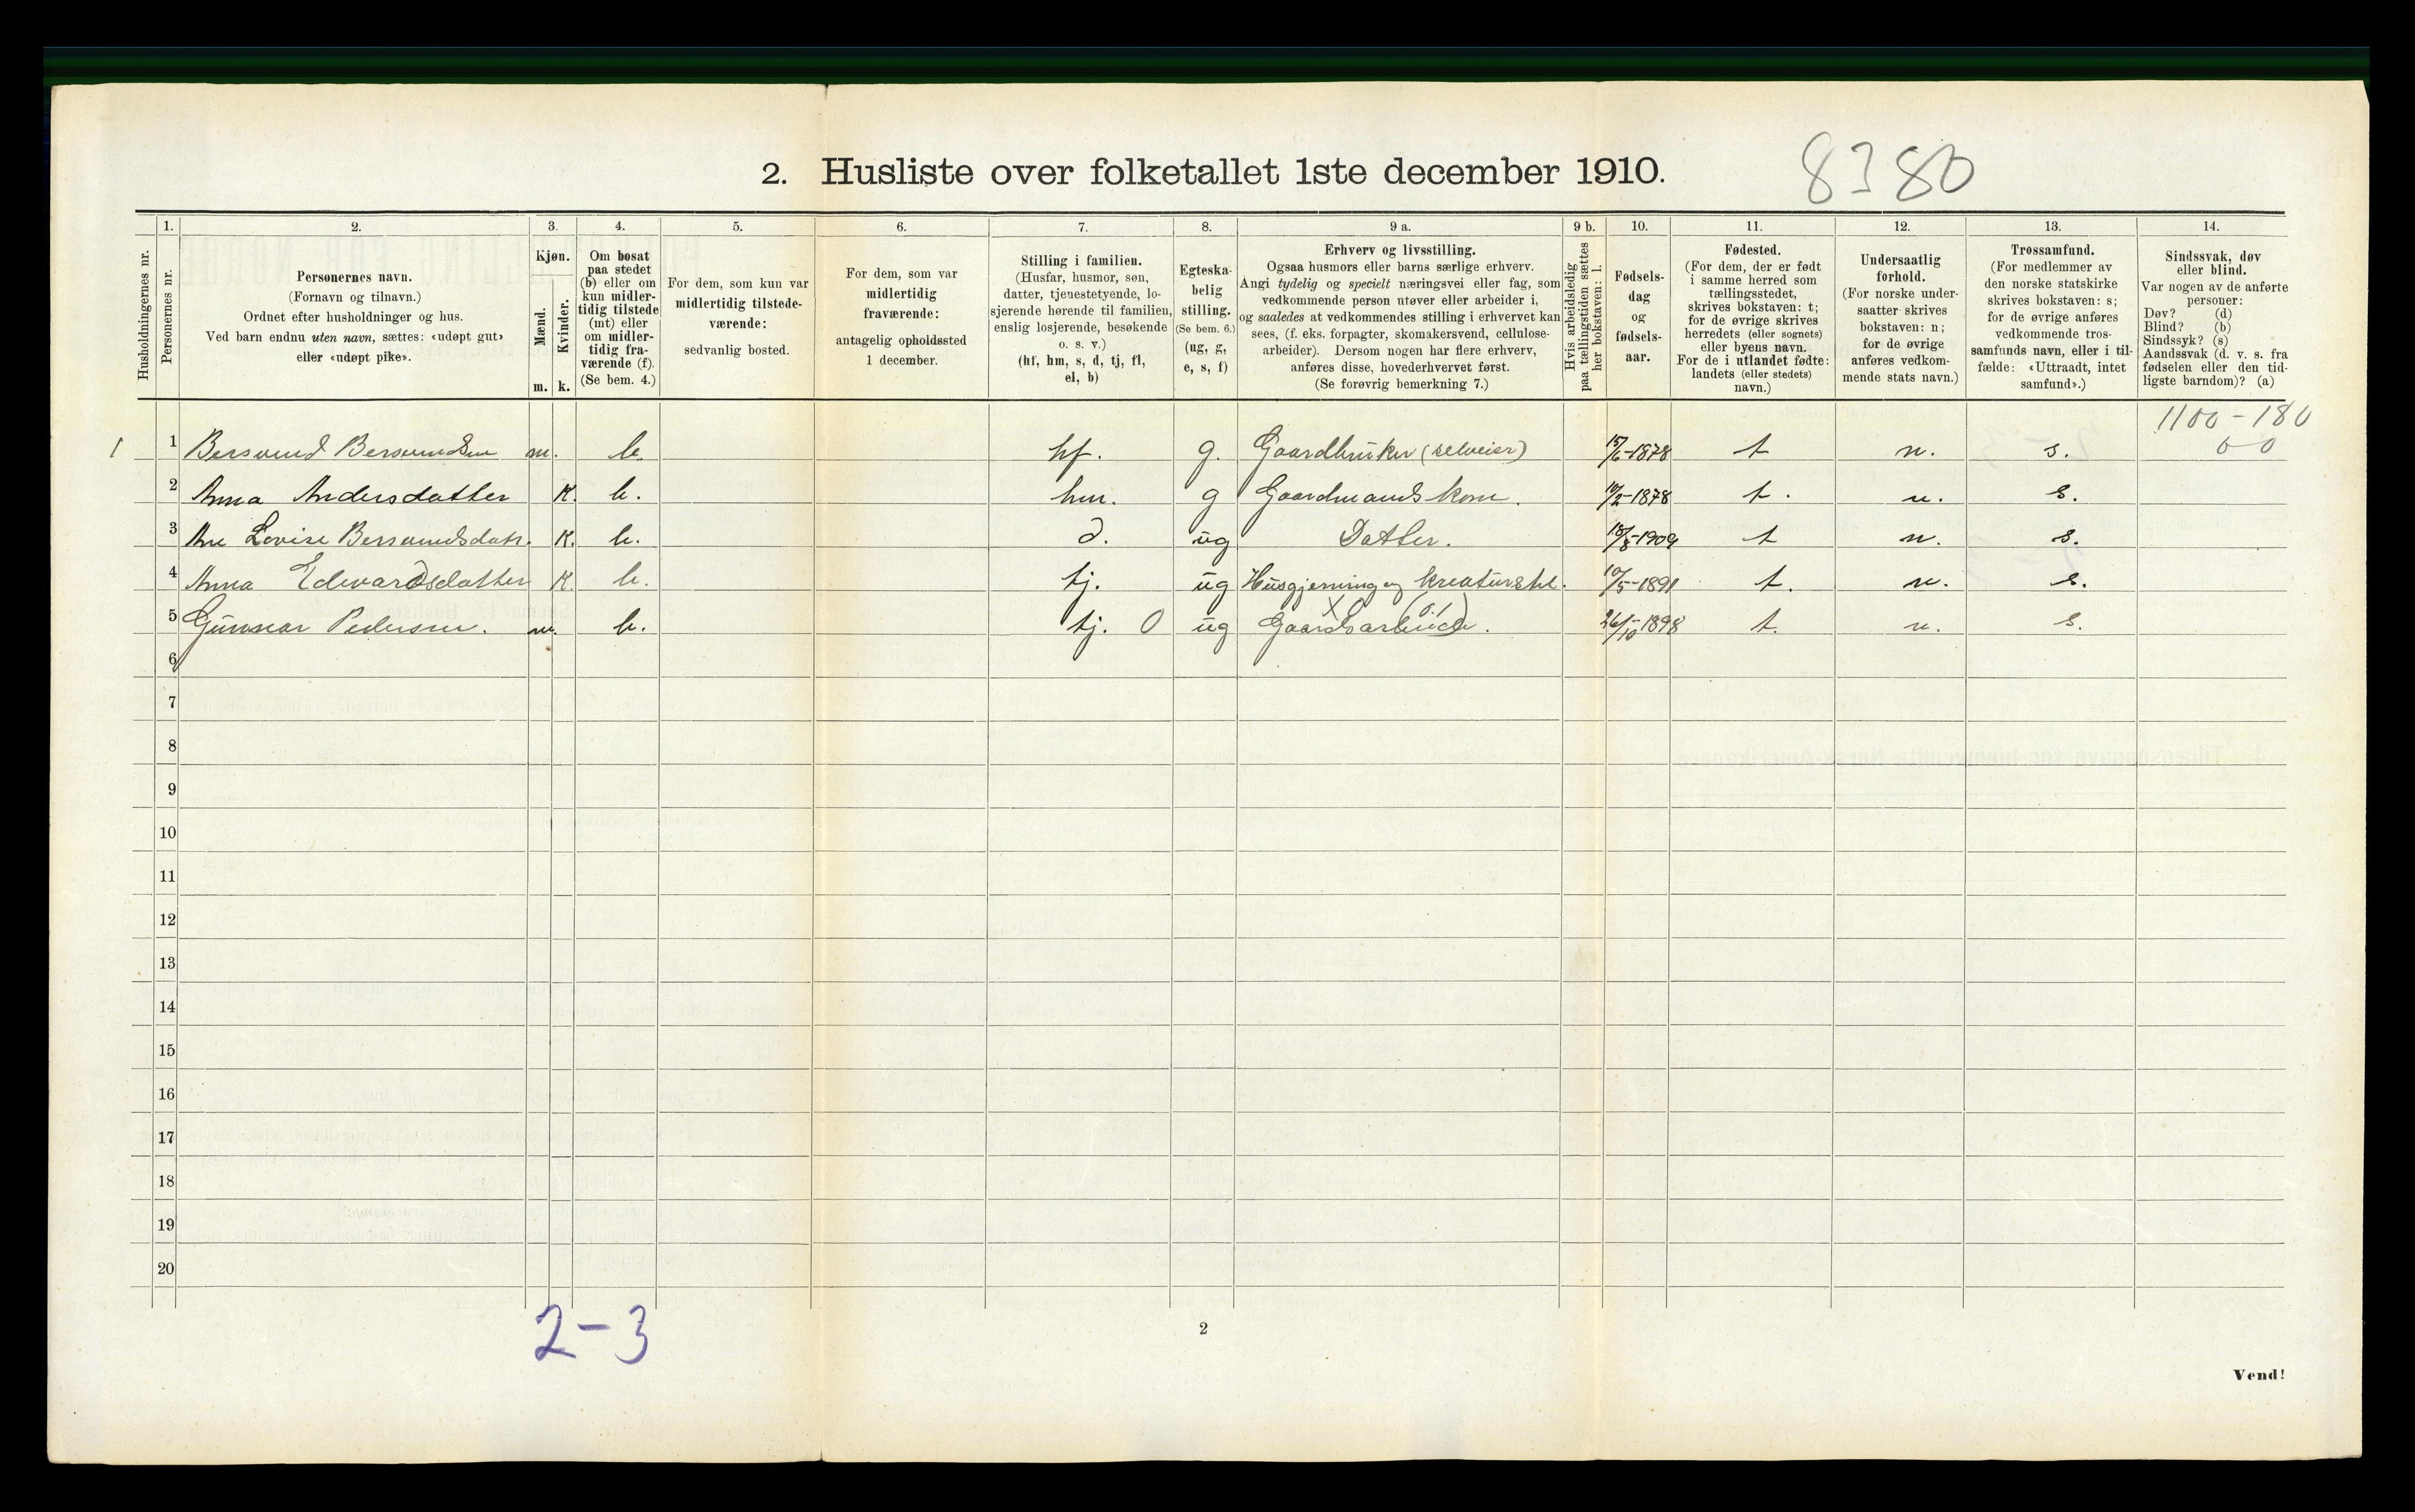 2. Husliste over folketallet 1ste december 1910.
8380
Husholdningernes nr.
1.
Personernes nr.
2.
Personernes navn.
(Fornavn og tilnavn.)
Ordnet efter husholdninger og hus.
Ved barn endnu uten navn, sættes: «udøpt gut»
eller «udøpt pike».
3.
Kjøn.
Mænd.
m.
Kvinder.
k.
4.
Om bosat
paa stedet
(b) eller om
kun midler-
tidig tilstede
(mt) eller
om midler-
tidig fra-
værende (f).
(Se bem. 4.)
5.
For dem, som kun var
midlertidig tilstede-
værende:
sedvanlig bosted.
6.
For dem, som var
midlertidig
fraværende:
antagelig opholdssted
1 december.
7.
Stilling i familien.
(Husfar, husmor, søn,
datter, tjenestetyende, lo-
sjerende hørende til familien,
enslig losjerende, besøkende
o. s. v.)
(hf, hm, s, d, tj, fl,
el, b)
8.
Egteska-
belig
stilling.
(Se bem. 6.)
(ug, g,
e, s, f)
9 a.
Erhverv og livsstilling.
Ogsaa husmors eller barns særlige erhverv.
Angi tydelig og specielt næringsvei eller fag, som
vedkommende person utøver eller arbeider i,
og saaledes at vedkommendes stilling i erhvervet kan
sees, (f. eks. forpagter, skomakersvend, cellulose-
arbeider). Dersom nogen har flere erhverv,
anføres disse, hovederhvervet først.
(Se forøvrig bemerkning 7.)
9 b.
Hvis arbeidsledig
paa tællingstiden sættes
her bokstaven: l.
10.
Fødsels-
dag
og
fødsels-
aar.
11.
Fødested.
(For dem, der er født
i samme herred som
tællingsstedet,
skrives bokstaven: t;
for de øvrige skrives
herredets (eller sognets)
eller byens navn.
For de i utlandet fødte:
landets (eller stedets)
navn.)
12.
Undersaatlig
forhold.
(For norske under-
saatter skrives
bokstaven: n;
for de øvrige
anføres vedkom-
mende stats navn.)
13.
Trossamfund.
(For medlemmer av
den norske statskirke
skrives bokstaven: s;
for de øvrige anføres
vedkommende tros-
samfunds navn, eller i til-
fælde: «Uttraadt, intet
samfund».)
14.
Sindssvak, døv
eller blind.
Var nogen av de anførte
personer:
Døv? (d)
Blind? (b)
Sindssyk? (s)
Aandssvak (d. v. s. fra
fødselen eller den tid-
ligste barndom)? (a)
1100 - 180
0 0
1 1 Bersvend Bersvendsen m. b. hf. g. Gaardbruker (selveier) 15/6-1878 t n. s.
2 Anna Andersdatter K. b. hm. g Gaardmands kone. 10/2-1878 t. n. s.
3 Ane Lovise Bersvendsdatr. K. b. d. ug Datter. 18/8-1909 t n. s.
4 Anna Edvardsdatter K. b. tj. ug Husgjerning og kreaturstel. 10/5-1891 t. n. s.
5 Gunnar Pedersen. m. b. tj. 0 ug Gaardsarbeide. 26/10-1898 t. n. s.
6
7
8
9
10
11
12
13
14
15
16
17
18
19
20
2-3
2
Vend!